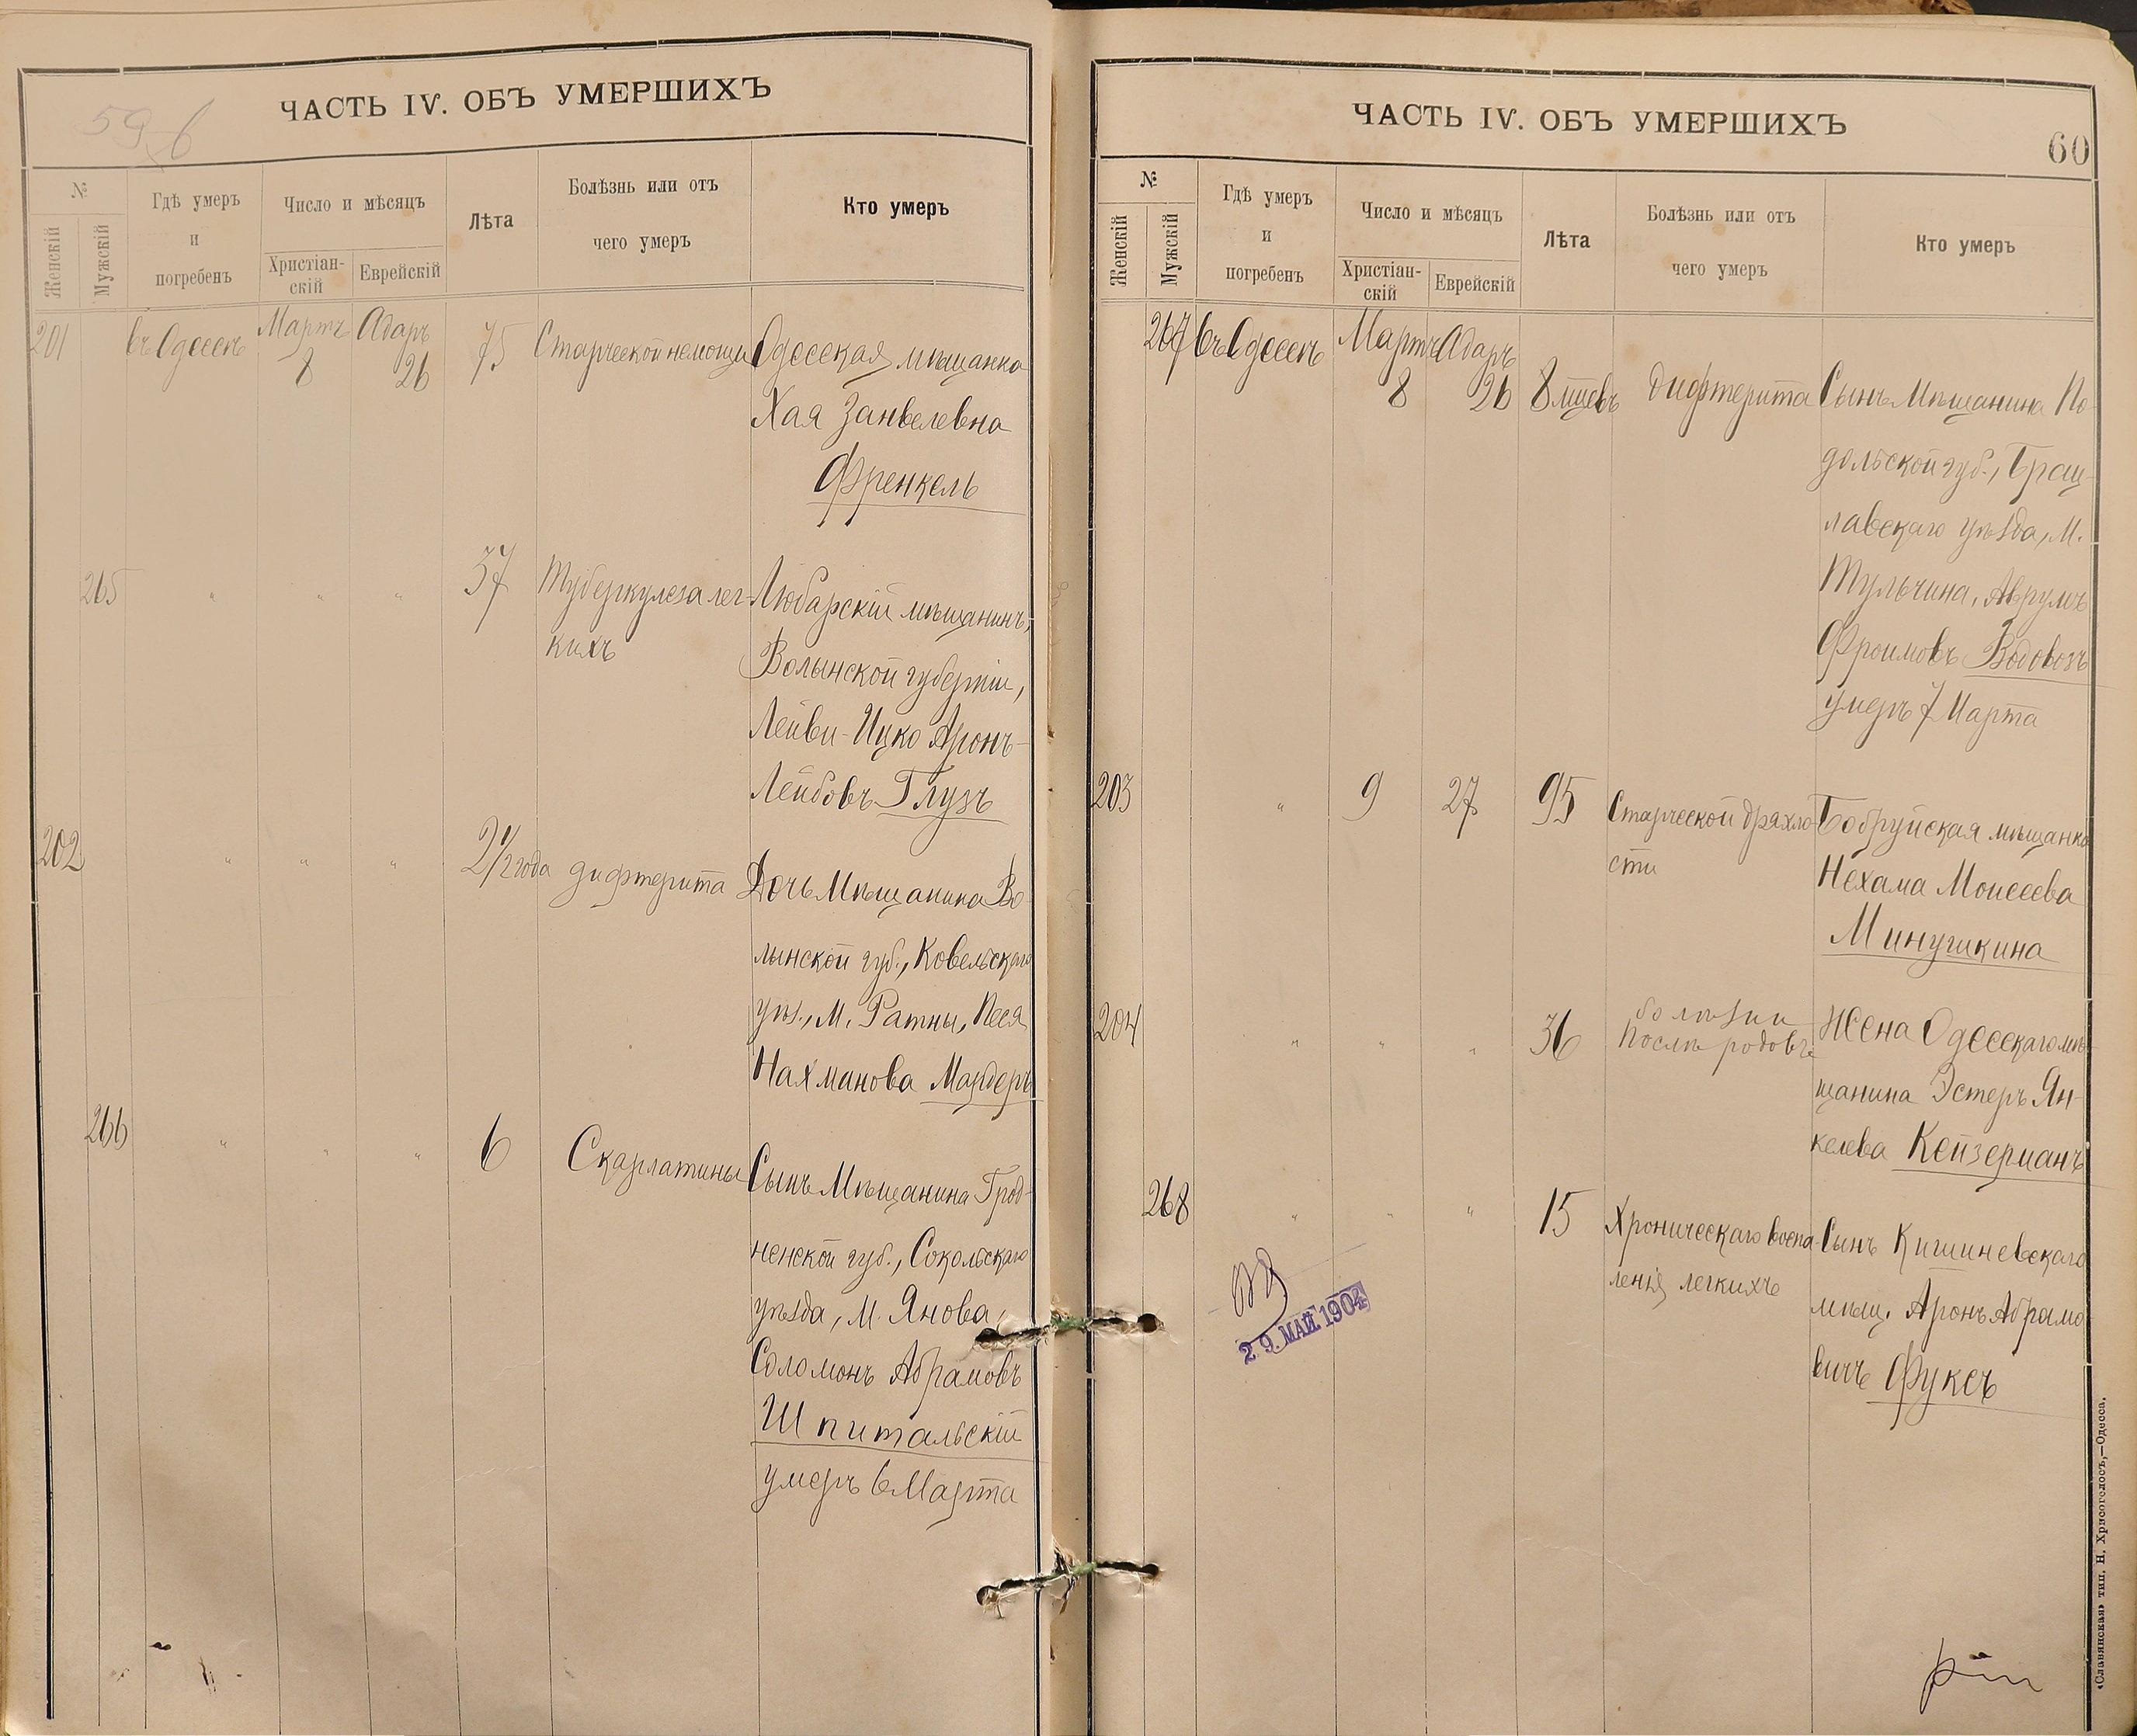 59
ЧАСТЬ IV. ОБЪ УМЕРШИХЪ
№
Женскій
Мужскій
Гдѣ умеръ
и
погребенъ
Число и мѣсяцъ
Христіан-
скій
Еврейскій
Лѣта
Болѣзнь или отъ
чего умеръ
Кто умеръ
201 въ Одессѣ Мартъ 8 Адаръ 26 75 Старческой немощи Одесская мѣщанка
Хая Занвелевна
Френкель
265 " " " 37 Туберкулеза лег- Любарскій мѣщанинъ,
кихъ
Волынской губерніи,
Лейви-Ицко Аронъ-
Лейбовъ Глузъ
202 " " " 2 1/2 года дифтерита Дочь Мѣщанина Во-
лынской губ., Ковельскаго
уѣз., М. Ратны, Песя
Нахманова Мардеръ
266 " " " 6 Скарлатины Сынъ Мѣщанина Грод-
ненской губ., Сокольскаго
уѣзда, М. Янова,
Соломонъ Абрамовъ
Шпитальскій
умеръ 6 Марта
ЧАСТЬ IV. ОБЪ УМЕРШИХЪ
60
№
Женскій
Мужскій
Гдѣ умеръ
и
погребенъ
Число и мѣсяцъ
Христіан-
скій
Еврейскій
Лѣта
Болѣзнь или отъ
чего умеръ
Кто умеръ
267 въ Одессѣ Мартъ 8 Адаръ 26 8 мцевъ дифтерита Сынъ Мѣщанина По-
дольской губ., Брац-
лавскаго уѣзда, М.
Тульчина, Аврумъ
Фроимовъ Водовозъ
умеръ 7 Марта
203 " 9 27 95 Старческой дряхло- Бобруйская мѣщанка
сти
Нехама Моисеева
Минушкина
204 " " " 36 болѣзни
Послѣ родовъ Жена Одесскаго мѣ-
щанина Эстеръ Ян-
келева Кейзерманъ
268 " " " 15 Хроническаго воспа- Сынъ Кишиневскаго
ленія легкихъ
мѣщ. Аронъ Абрамо-
вичъ Фуксъ
29. МАЙ. 1904
«Славянская» тип. Н. Хрисогелосъ,—Одесса.